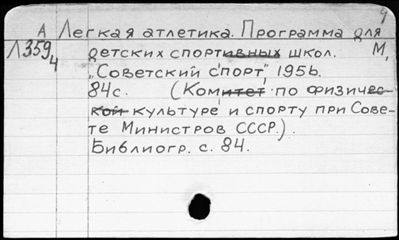 9
А Легкая атлетика. Программа для
Л359 детских спортивных школ. М,
4 „Советский спорт", 1956.
84с. (Комитет по физичес-
кой культуре и спорту при Сове-
те Министров СССР.).
Библиогр. с. 84.